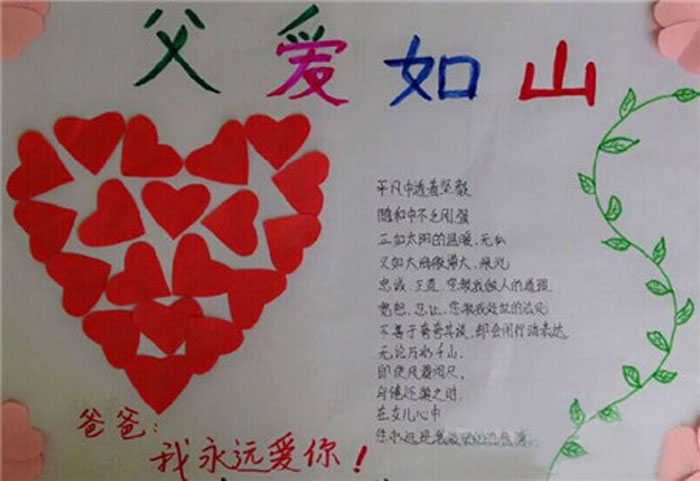 父爱如山
平凡中透着坚毅
随和中不乏刚强
正如太阳的温暖、无私
又如大海般博大、深沉
忠诚、正直、您教我做人的道理
宽恕、忍让、您教我处世的法则
不善于夸夸其谈、却会用行动表达
无论万水千山、
即使风霜闭尺、
身倦还巢之时、
在女儿心中
您永远是我最
爸爸：
我永远爱你！